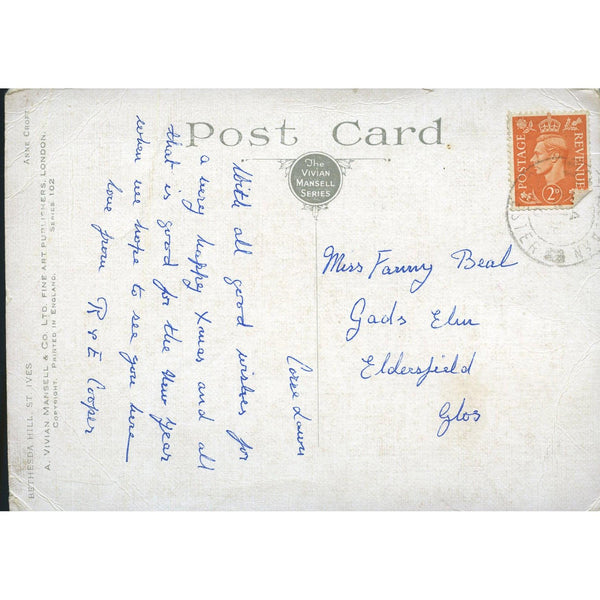 Post Card
The
VIVIAN
MANSELL
SERIES
POSTAGE
REVENUE
2D
Corse Lawn
With all good wishes for
a very happy Xmas and all
that is good for the New Year
when we hope to see you here —
love from R & E Cooper
Miss Fanny Beal
Gads Elm
Eldersfield
Glos
ANNE CROFT
A. VIVIAN MANSELL & CO. LTD. FINE ART PUBLISHERS, LONDON.
COPYRIGHT. PRINTED IN ENGLAND. SERIES 102
BETHESDA HILL, ST. IVES